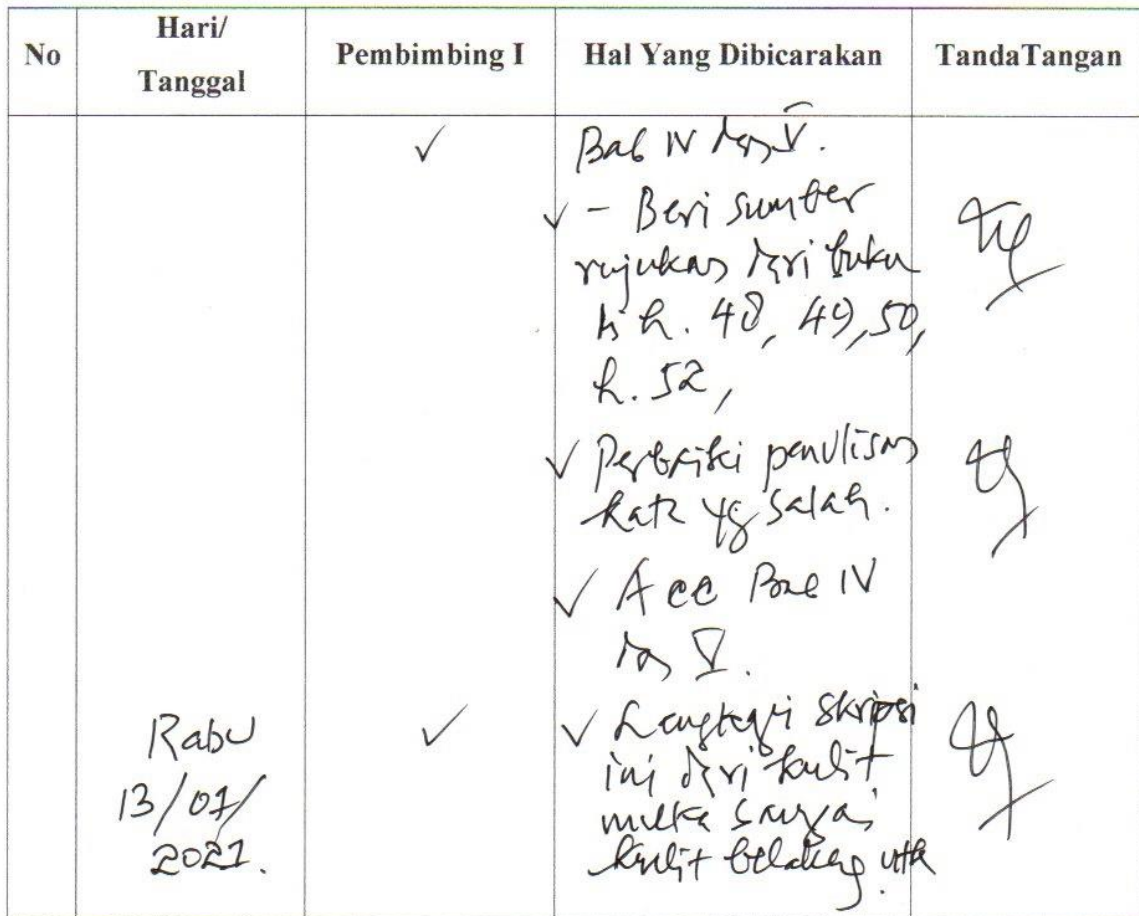 No
Hari/
Tanggal
Pembimbing I
Hal Yang Dibicarakan
TandaTangan
✓
Bab IV dan V.
✓ - Beri sumber
rujukan dari buku
h. 48, 49, 50,
h. 52,
✓ Perbaiki penulisan
kata yg salah.
✓ Acc Bab IV
dan V.
Rabu
13/01/
2021.
✓
✓ Lengkapi skripsi
ini dari kulit
muka sampai
kulit belakang utk